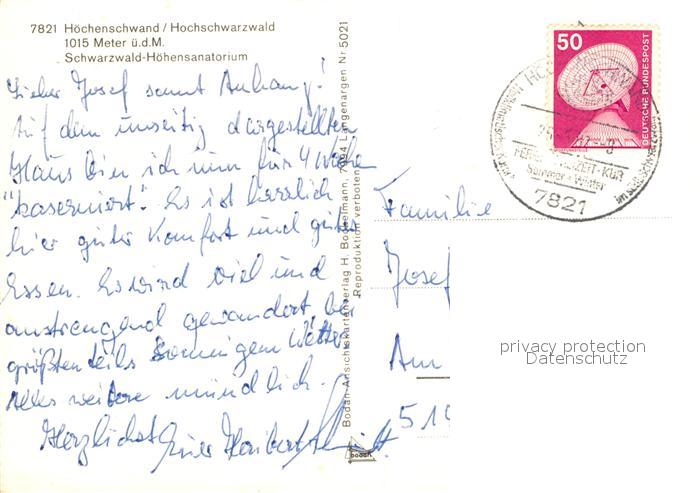 7821 Höchenschwand / Hochschwarzwald
1015 Meter ü.d.M.
Schwarzwald-Höhensanatorium
Lieber Josef samt Anhang!
Auf dem umseitig dargestellten
Haus bin ich nun für 4 Woche
"kaserniert". Es ist herrlich
hier guter Komfort und gutes
Essen. Es wird viel und
anstrengend gewandert bei
größtenteils sonnigem Wetter.
Alles weitere mündlich.
Herzlichst Euer
Bodan-Ansichtskartenverlag H. Bockelmann, 7994 Langenargen Nr 5021
Reproduktion verboten
bodan
50
DEUTSCHE BUNDESPOST
Sommer + Winter
7821
Familie
Josef
Am
privacy protection
Datenschutz